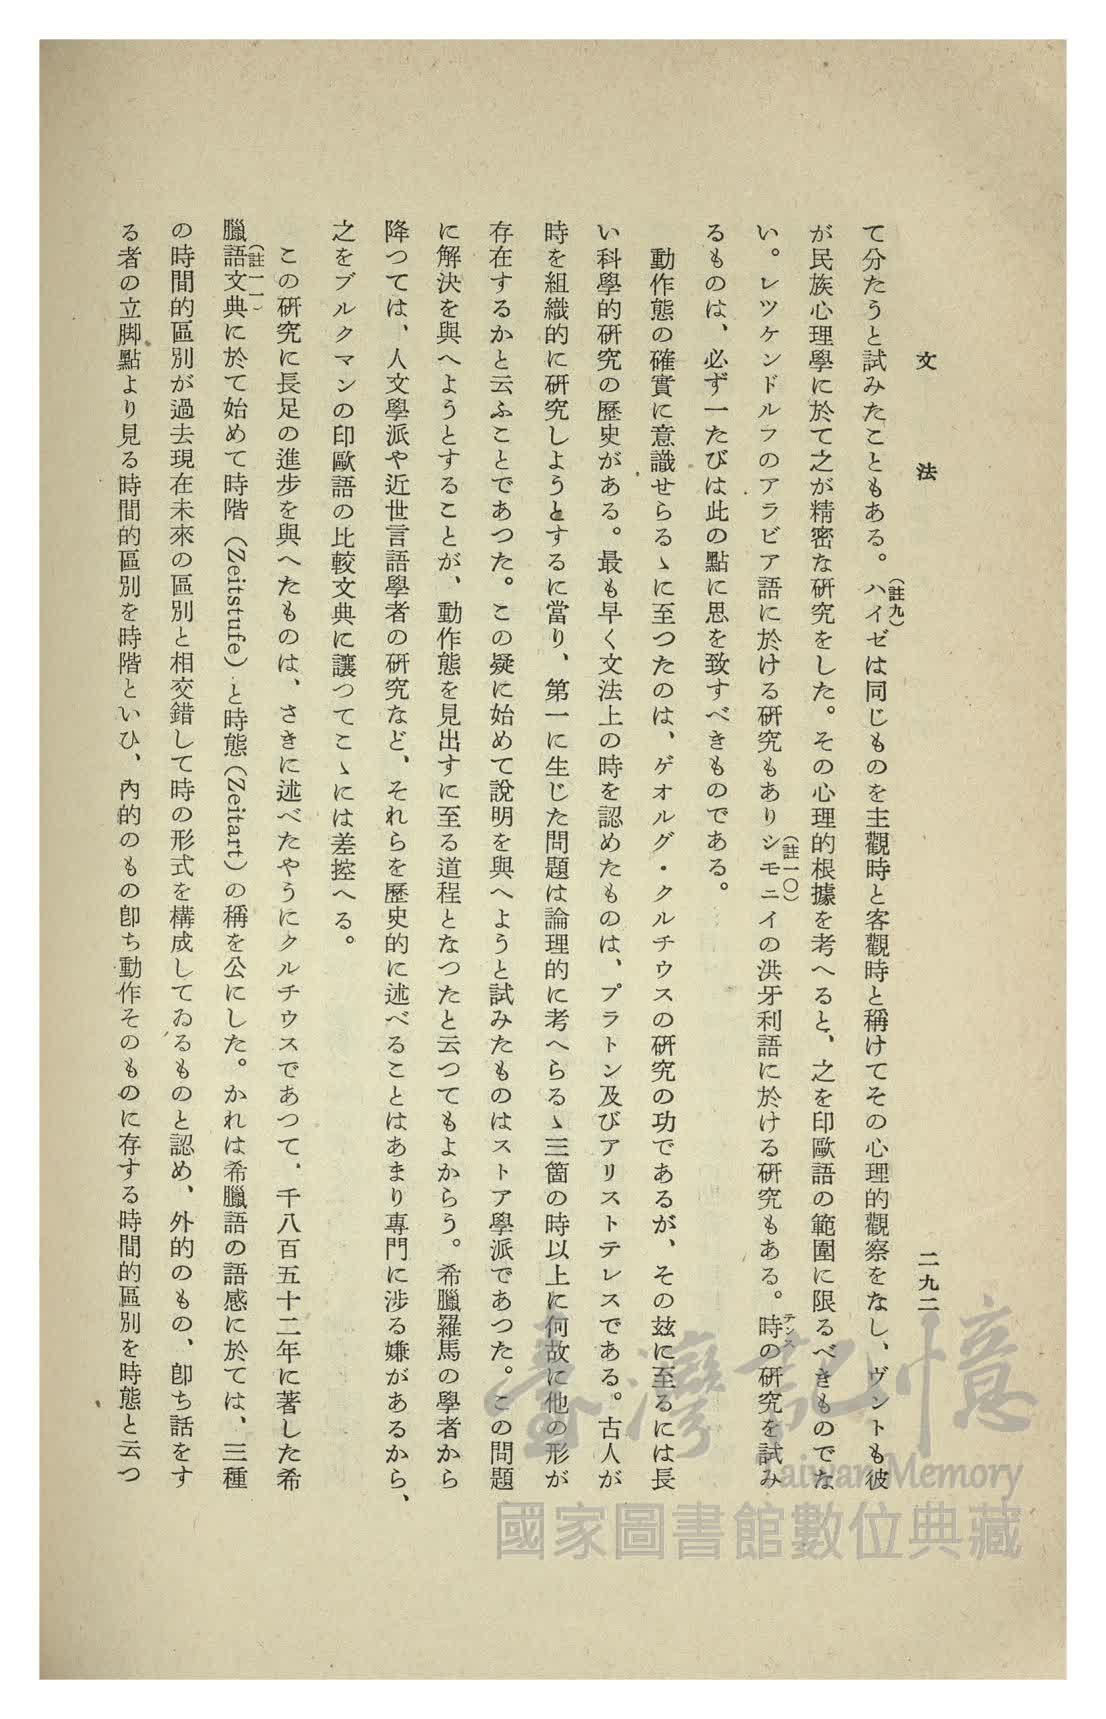 文法
二九二
て分たうと試みたこともある。ハイゼ(註九)は同じものを主觀時と客觀時と稱けてその心理的觀察をなし、ヴントも彼
が民族心理學に於て之が精密な研究をした。その心理的根據を考へると、之を印歐語の範圍に限るべきものでな
い。レツケンドルフのアラビア語に於ける研究もありシモニイ(註一〇)の洪牙利語に於ける研究もある。時(テンス)の研究を試み
るものは、必ず一たびは此の點に思を致すべきものである。
動作態の確實に意識せらるゝに至つたのは、ゲオルグ・クルチウスの研究の功であるが、その玆に至るには長
い科學的研究の歷史がある。最も早く文法上の時を認めたものは、プラトン及びアリストテレスである。古人が
時を組織的に研究しようとするに當り、第一に生じた問題は論理的に考へらるゝ三箇の時以上に何故に他の形が
存在するかと云ふことであつた。この疑に始めて說明を與へようと試みたものはストア學派であつた。この問題
に解決を與へようとすることが、動作態を見出すに至る道程となつたと云つてもよからう。希臘羅馬の學者から
降つては、人文學派や近世言語學者の研究など、それらを歷史的に述べることはあまり專門に涉る嫌があるから、
之をブルクマンの印歐語の比較文典に讓つてこゝには差控へる。
この研究に長足の進步を與へたものは、さきに述べたやうにクルチウスであつて、千八百五十二年に著した希
臘語文典(註一一)に於て始めて時階(Zeitstufe)と時態(Zeitart)の稱を公にした。かれは希臘語の語感に於ては、三種
の時間的區別が過去現在未來の區別と相交錯して時の形式を構成してゐるものと認め、外的のもの、卽ち話をす
る者の立脚點より見る時間的區別を時階といひ、內的のもの卽ち動作そのものに存する時間的區別を時態と云つ
臺灣記憶
Taiwan Memory
國家圖書館數位典藏